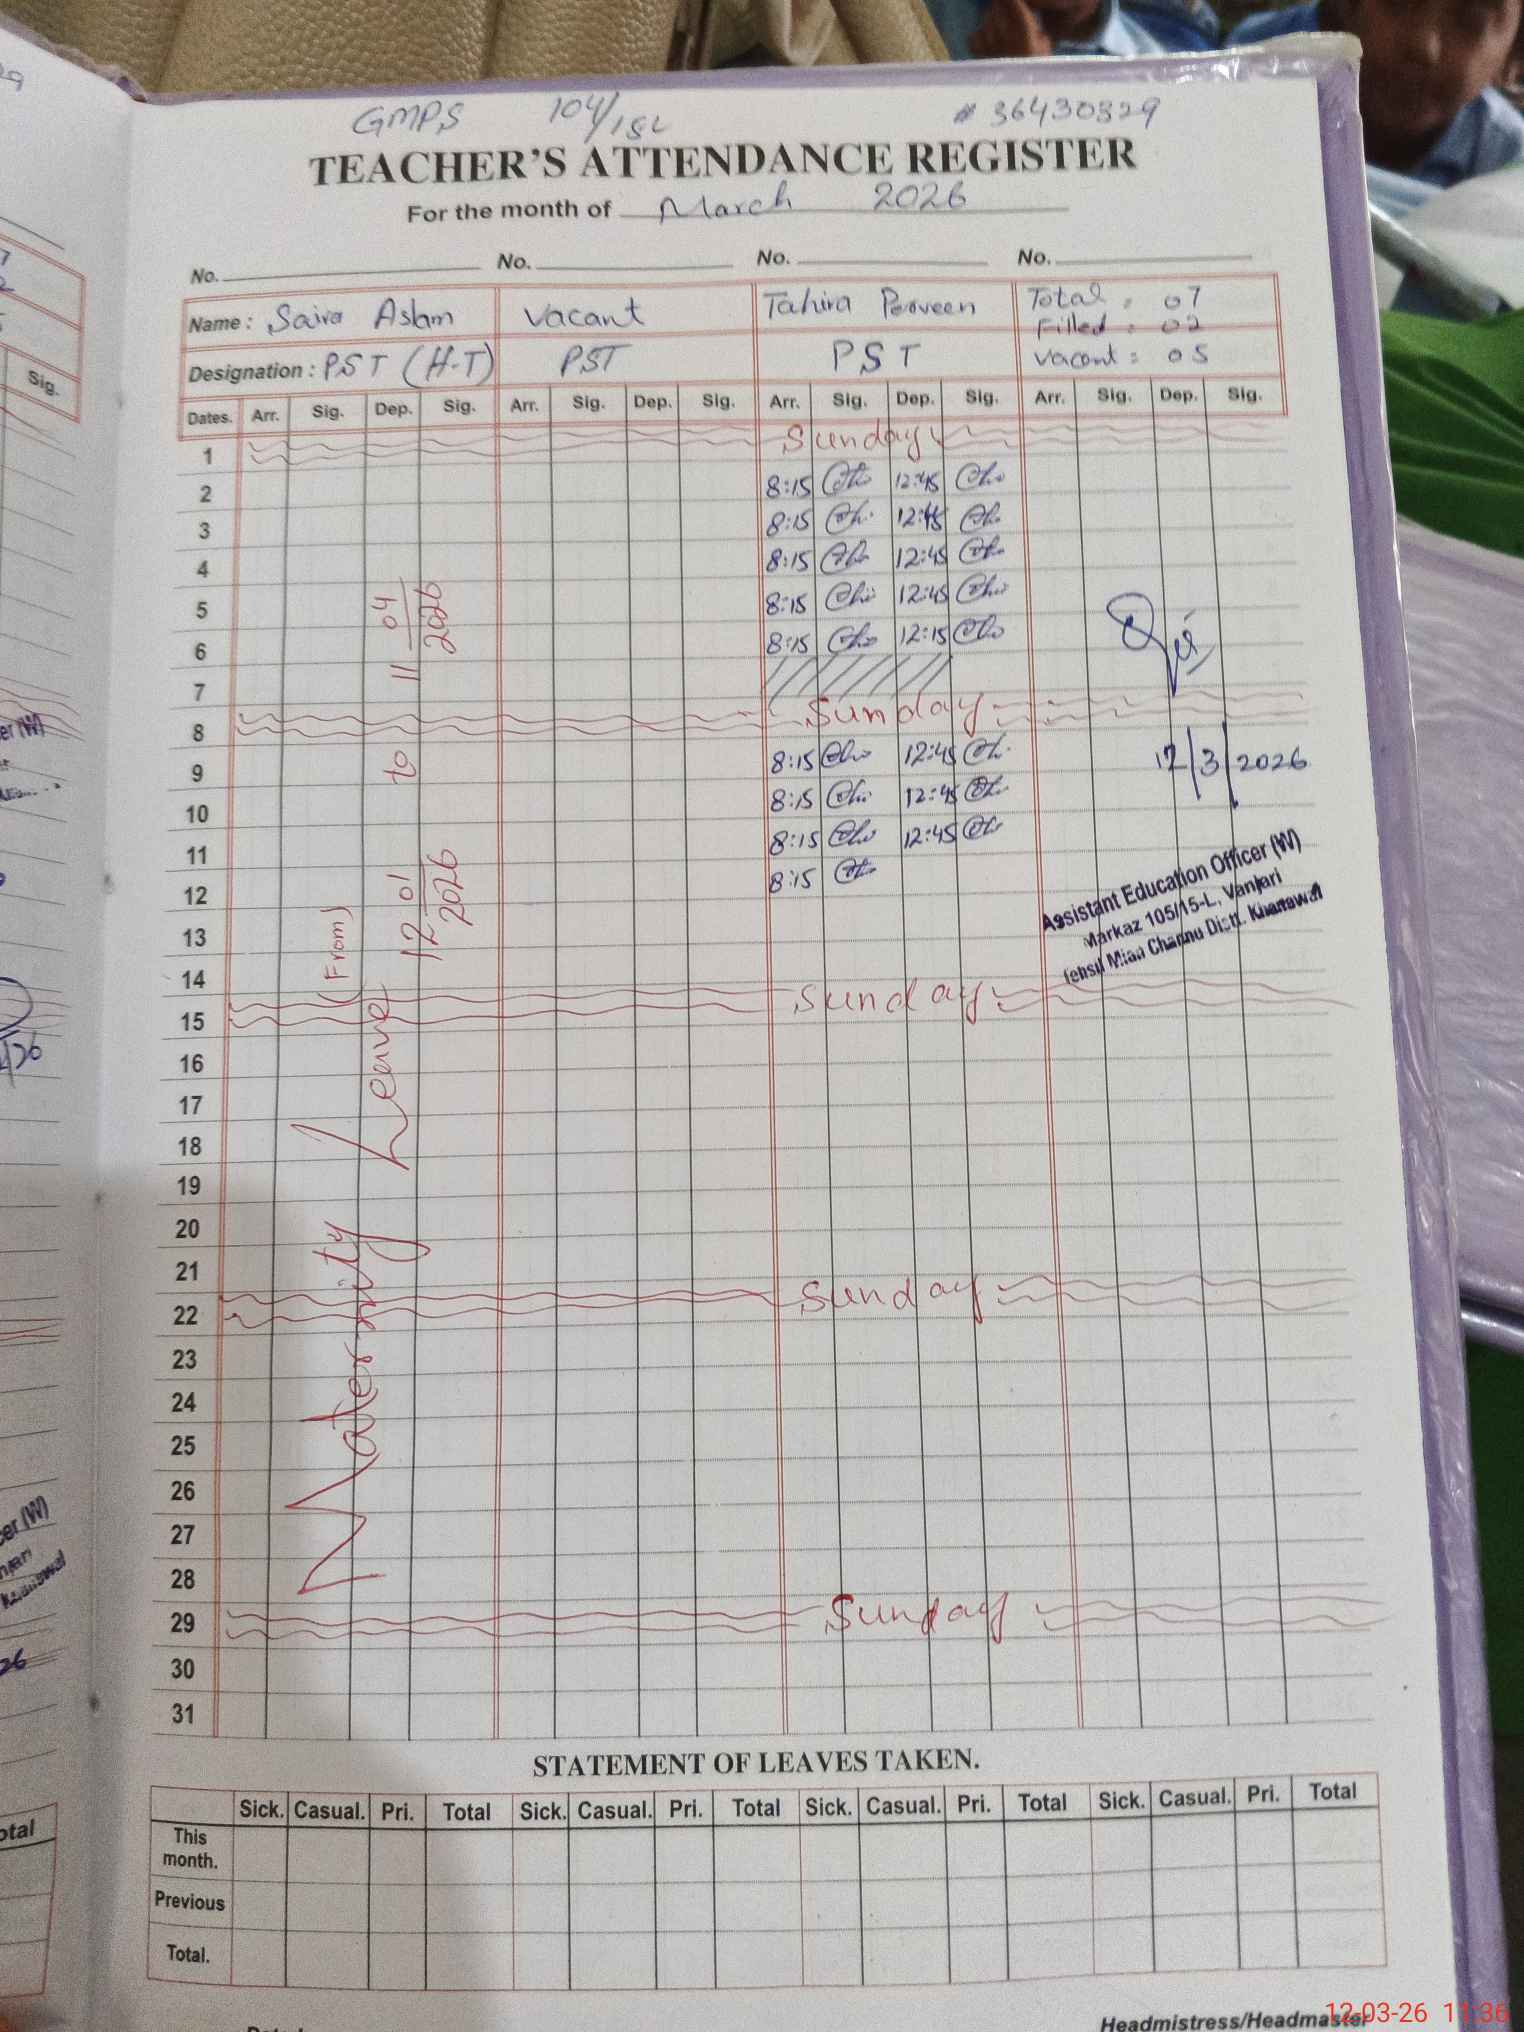 GMPS 104/15L # 36430329
TEACHER'S ATTENDANCE REGISTER
For the month of March 2026
No. No. No. No.
Name : Saira Aslam Vacant Tahira Perveen Total = 07
Filled = 02
Designation : PST (H-T) PST PST Vacant = 05
Dates. Arr. Sig. Dep. Sig. Arr. Sig. Dep. Sig. Arr. Sig. Dep. Sig. Arr. Sig. Dep. Sig.
1 Sunday
2 8:15 12:45
3 8:15 12:45
4 8:15 12:45
5 8:15 12:45
6 8:15 12:15
7
8 Sunday
9 8:15 12:45
10 8:15 12:45
11 8:15 12:45
12 8:15
13
14
15 Sunday
16
17
18
19
20
21
22 Sunday
23
24
25
26
27
28
29 Sunday
30
31
Maternity Leave (From) 12 01/2026 to 11 04/2026
12/3/2026
Assistant Education Officer (W)
Markaz 105/15-L, Vanjari
Tehsil Mian Channu Distt. Khanewal
STATEMENT OF LEAVES TAKEN.
Sick. Casual. Pri. Total Sick. Casual. Pri. Total Sick. Casual. Pri. Total Sick. Casual. Pri. Total
This month.
Previous
Total.
Headmistress/Headmaster
12-03-26 11:36
Sig.